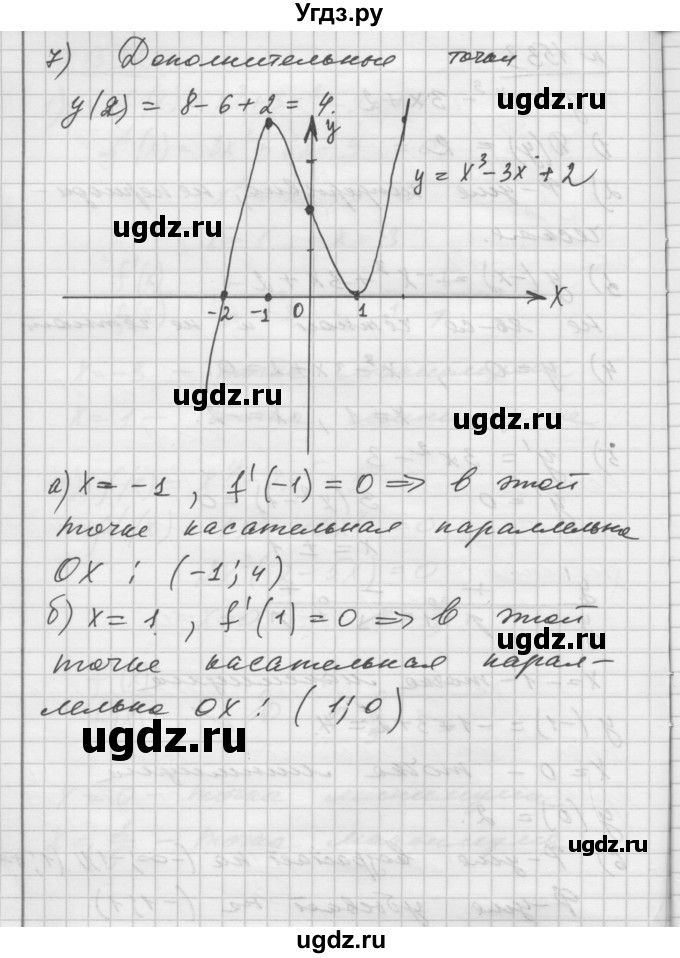 Угдз.ру
7) Дополнительные точки
y(2) = 8 - 6 + 2 = 4.
y
y = x³ - 3x + 2
ugdz.ru
ugdz.ru
-2 -1 0 1 X
ugdz.ru
ugdz.ru
а) x = -1 , f'(-1) = 0 => в этой
точке касательная параллельна
OX : (-1; 4)
б) x = 1 , f'(1) = 0 => в этой
ugdz.ru
точке касательная парал-
лельна OX : (1; 0)
ugdz.ru
ugdz.ru
ugdz.ru